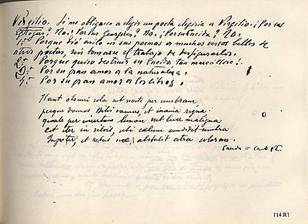 Virgilio. Si me obligaran a elegir un poeta elegiría a Virgilio. ¿Por sus
Églogas? No. ¿Por sus Geórgicas? No. ¿Por su Eneida? No.
1º.- Porque dió asilo en sus poemas a muchos versos bellos de
otros poetas, sin tomarse el trabajo de desfigurarlos.
2º.- Porque quiso destruir su Eneida
3º.- Por su gran amor a la naturaleza.
4º.- Por su gran amor a los libros.
Ibant obscuri sola sub nocte per umbram
perque domos Ditis vacuas et inania regna:
quale per incertam lunam sub luce maligna
est iter in silvis, ubi caelum condidit umbra
Iuppiter, et rebus nox abstulit atra colorem.
Eneida
[14R]